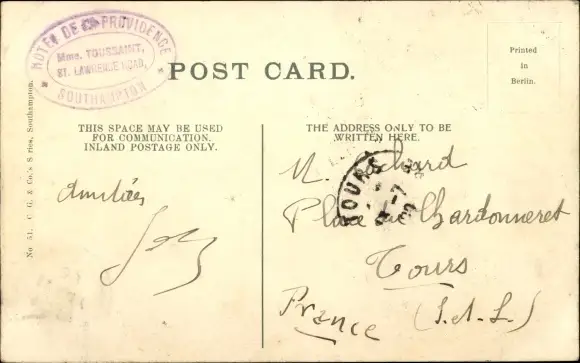 HÔTEL DE LA PROVIDENCE
Mme. TOUSSAINT,
ST. LAWRENCE ROAD,
SOUTHAMPTON
POST CARD.
Printed
in
Berlin.
THIS SPACE MAY BE USED
FOR COMMUNICATION.
INLAND POSTAGE ONLY.
THE ADDRESS ONLY TO BE
WRITTEN HERE.
No 51. C. G. & Co.'s Series, Southampton.
Amitiés
M.
Place de Chardonneret
Tours
France (I.&L.)
TOURS